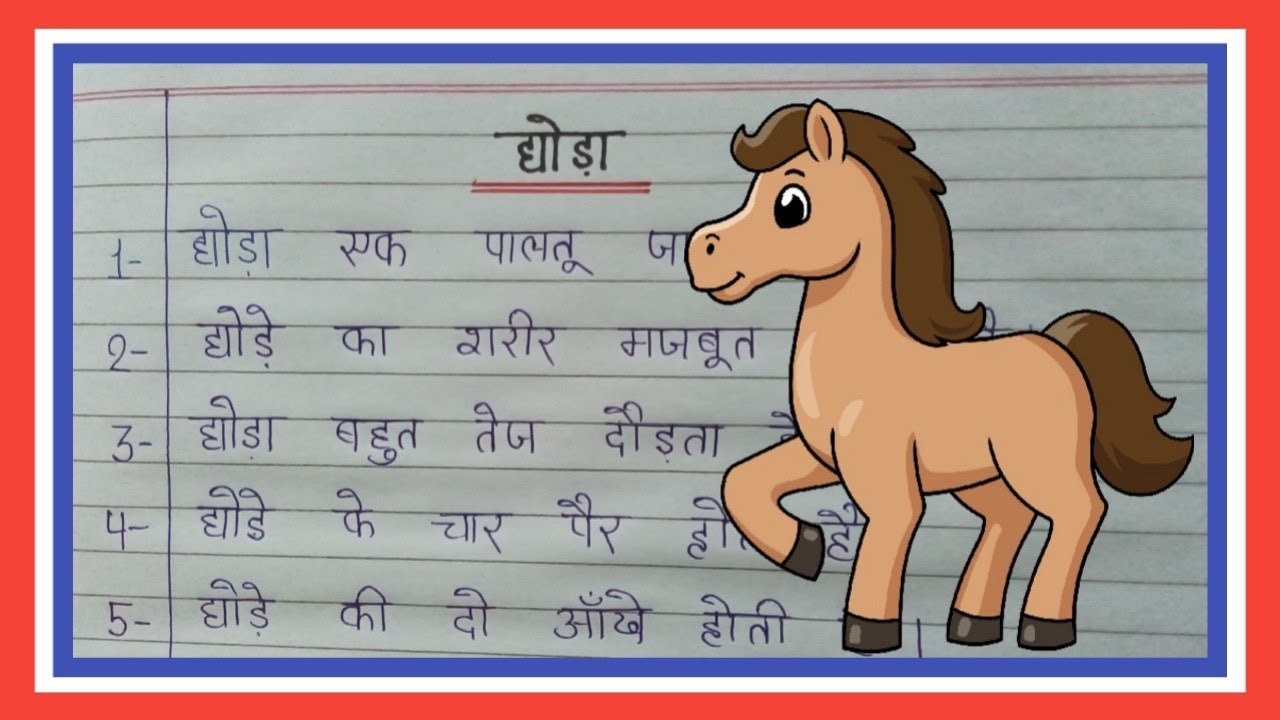 घोड़ा
1- घोड़ा एक पालतू
2- घोड़े का शरीर मजबूत
3- घोड़ा बहुत तेज दौड़ता
4- घोडे के चार पैर
5- घोड़े की दो आँखे होती